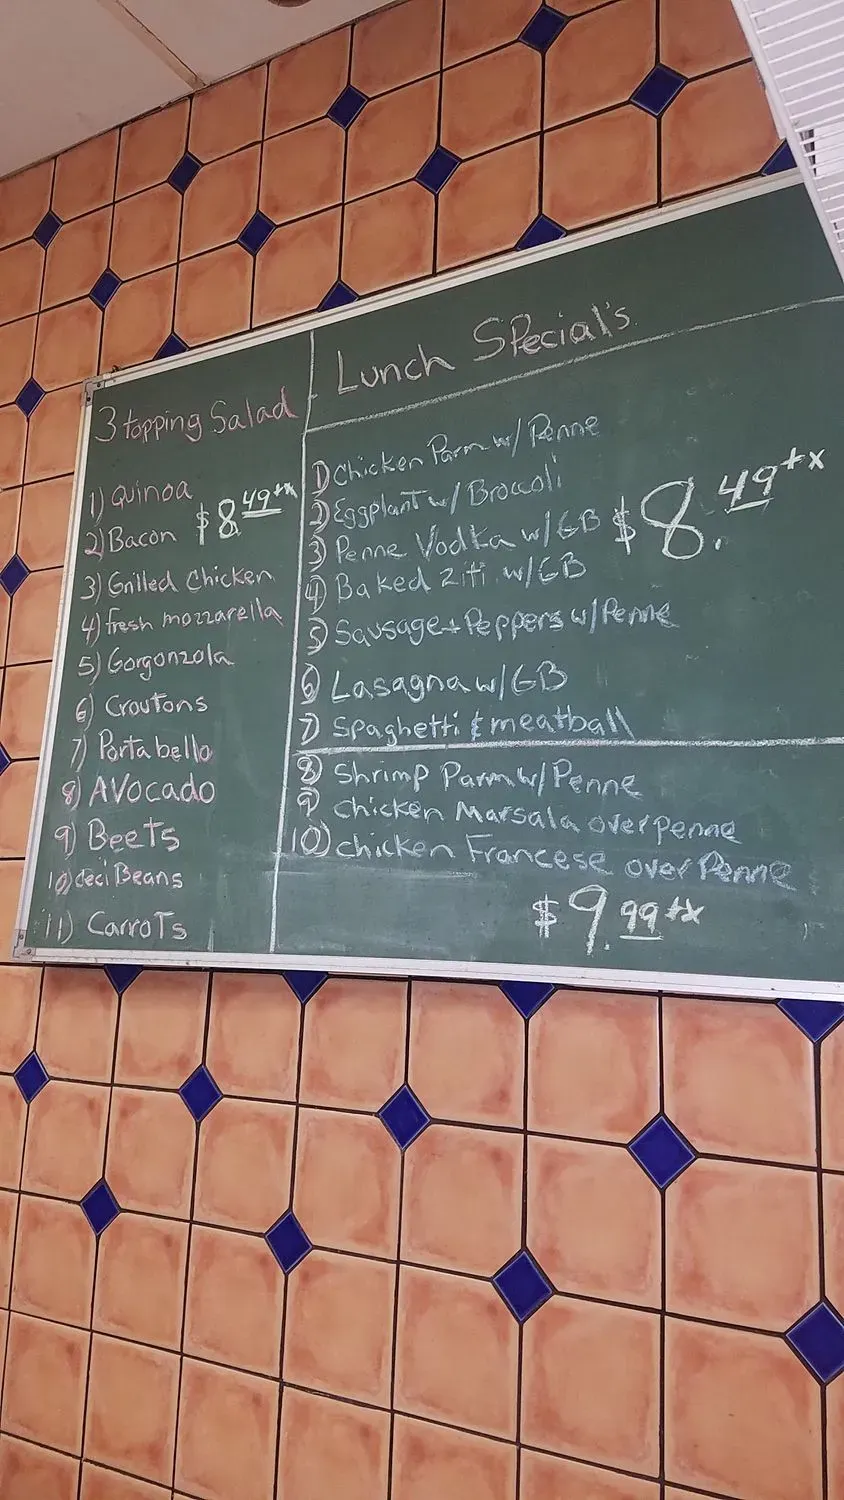 3 topping Salad
1) Quinoa
$8.49+x
2) Bacon
3) Grilled Chicken
4) fresh mozzarella
5) Gorgonzola
6) Croutons
7) Portabello
8) AVocado
9) BeeTs
10) ceci Beans
11) CarroTs
Lunch SPecial's
1) Chicken Parm w/ Penne
2) Eggplant w/ Broccoli
3) Penne Vodka w/GB
$8.49+x
4) Baked Ziti w/GB
5) Sausage + Peppers w/Penne
6) Lasagna w/GB
7) Spaghetti & meatball
8) Shrimp Parm w/ Penne
9) chicken Marsala over penne
10) chicken Francese over Penne
$9.99+x